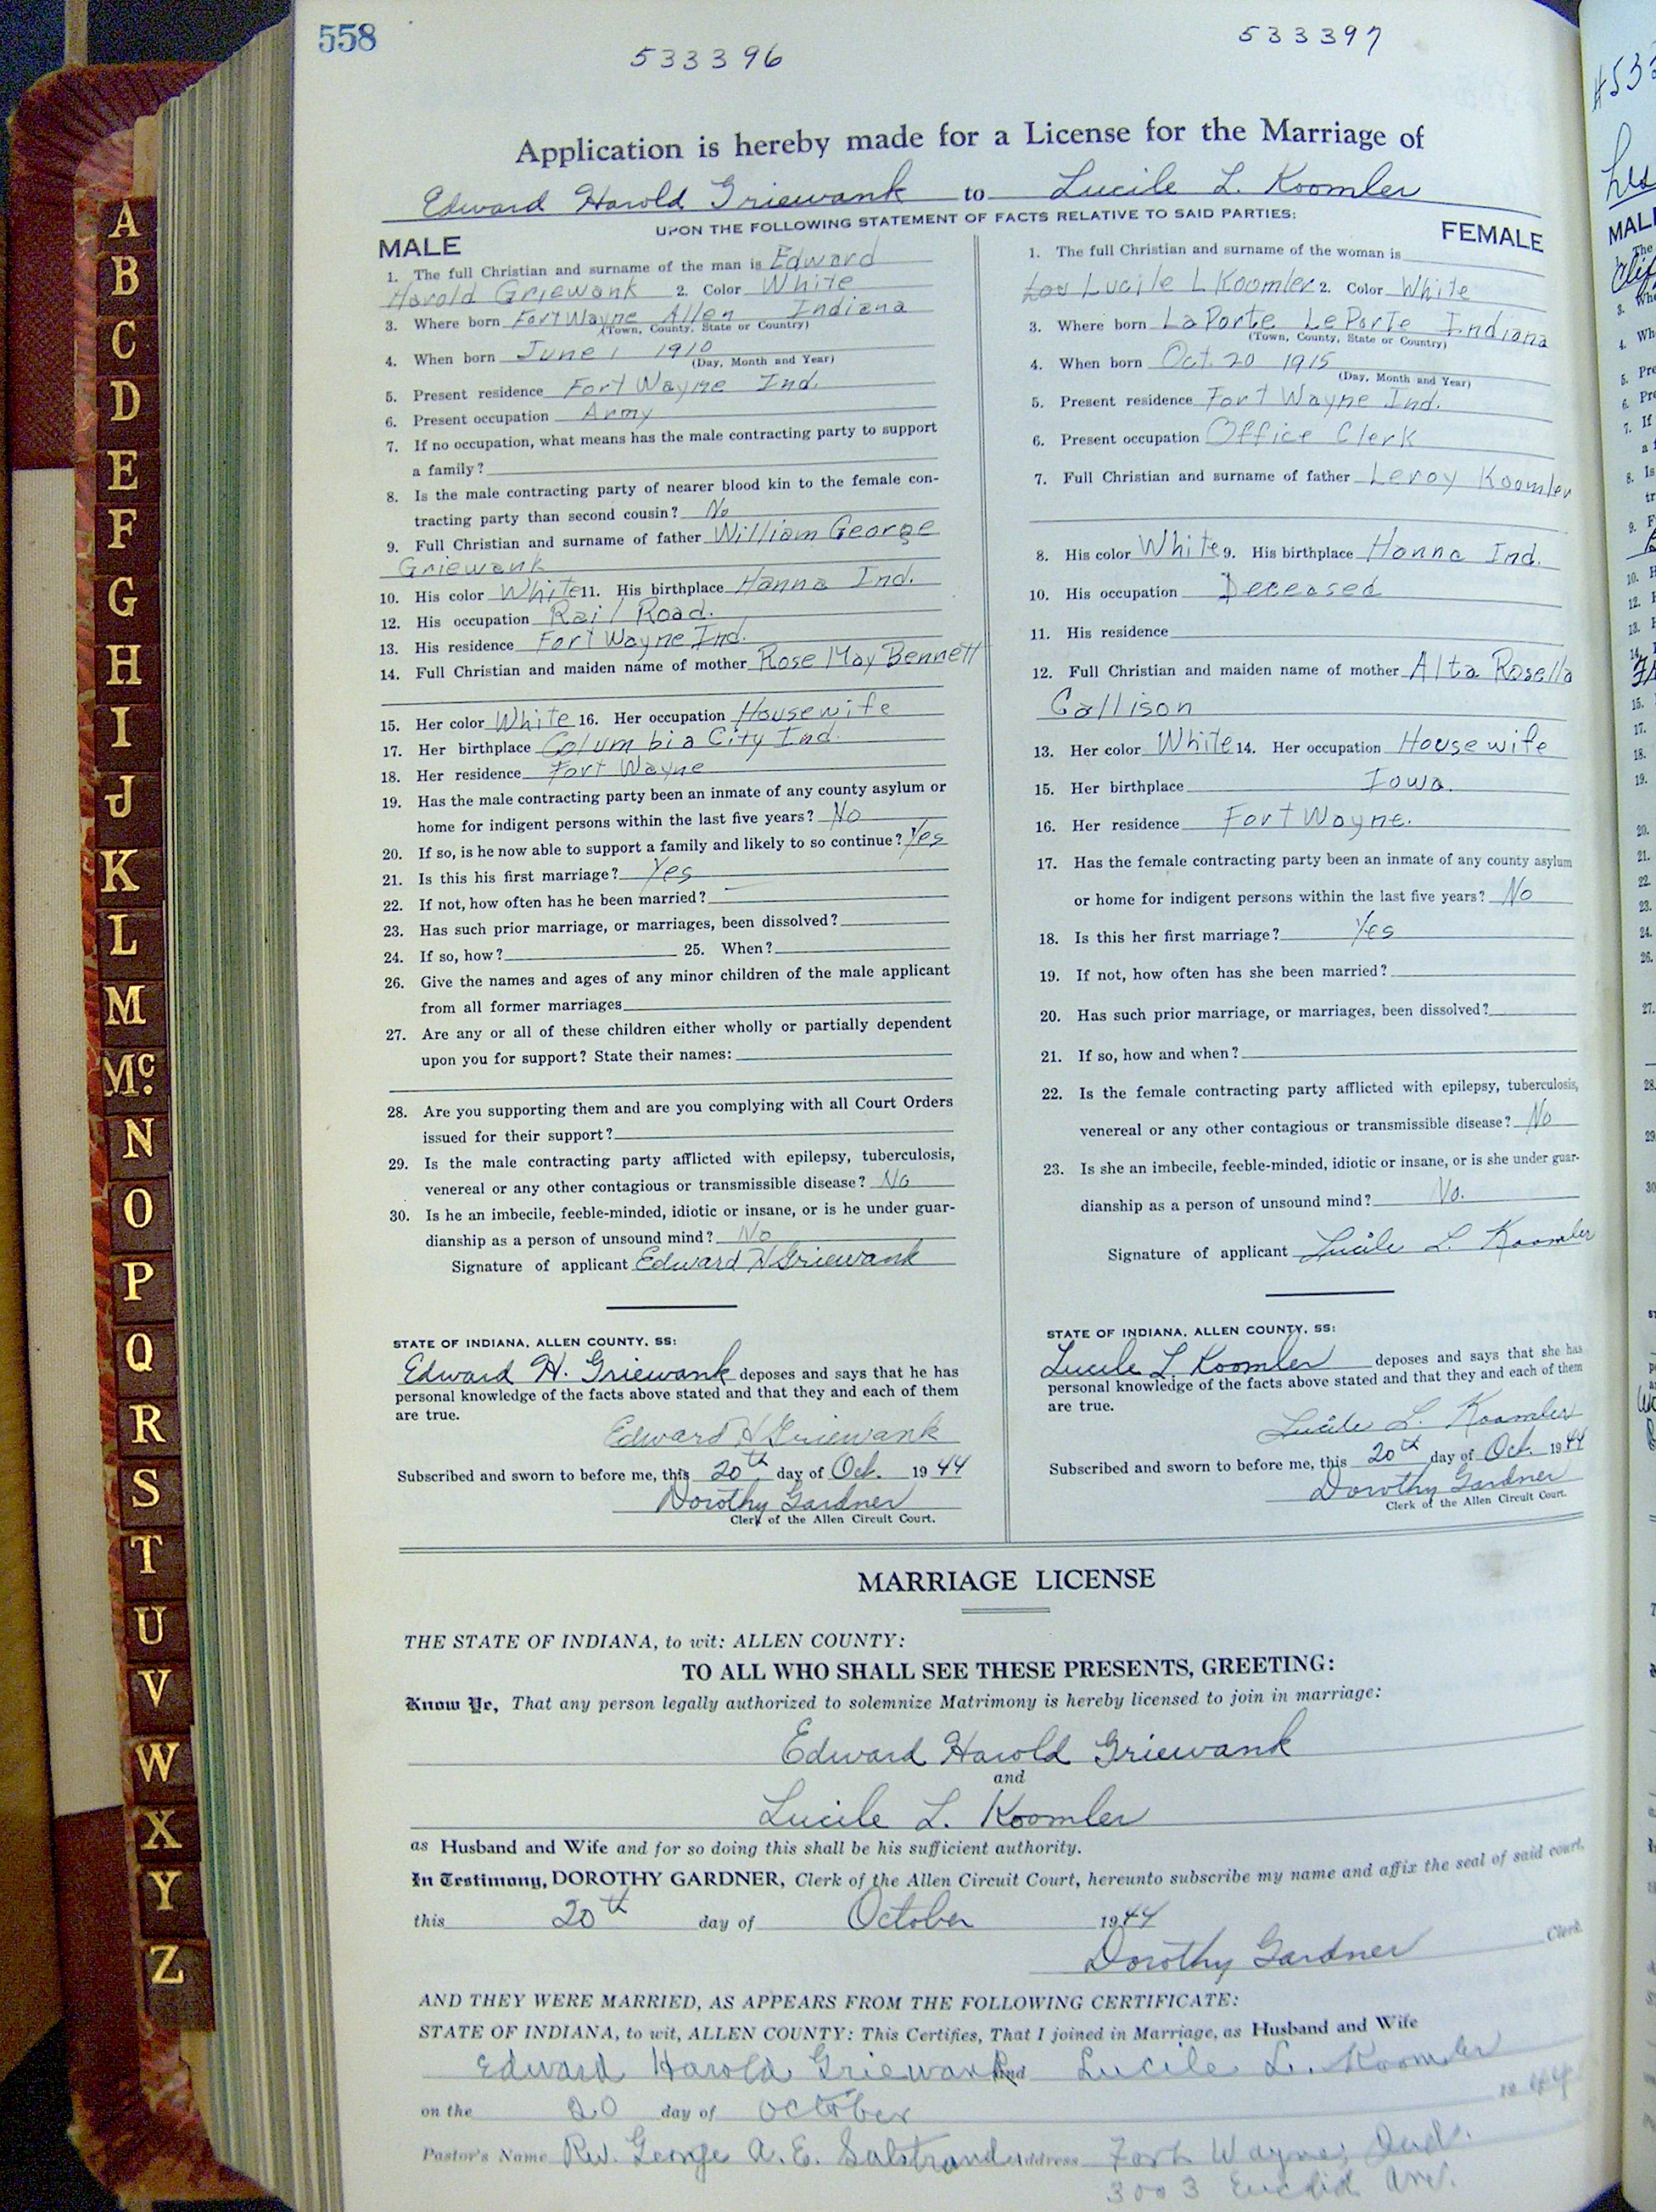 558
533396
533397
Application is hereby made for a License for the Marriage of
Edward Harold Griewank to Lucile L. Koomler
UPON THE FOLLOWING STATEMENT OF FACTS RELATIVE TO SAID PARTIES:
MALE
1. The full Christian and surname of the man is Edward
Harold Griewank 2. Color White
3. Where born Fort Wayne Allen Indiana
(Town, County, State or Country)
4. When born June 1 1910
(Day, Month and Year)
5. Present residence Fort Wayne Ind.
6. Present occupation Army
7. If no occupation, what means has the male contracting party to support
a family?
8. Is the male contracting party of nearer blood kin to the female con-
tracting party than second cousin? No
9. Full Christian and surname of father William George
Griewank
10. His color White 11. His birthplace Hanna Ind.
12. His occupation Rail Road.
13. His residence Fort Wayne Ind.
14. Full Christian and maiden name of mother Rose May Bennett
15. Her color White 16. Her occupation Housewife
17. Her birthplace Columbia City Ind.
18. Her residence Fort Wayne
19. Has the male contracting party been an inmate of any county asylum or
home for indigent persons within the last five years? No
20. If so, is he now able to support a family and likely to so continue? Yes
21. Is this his first marriage? Yes
22. If not, how often has he been married?
23. Has such prior marriage, or marriages, been dissolved?
24. If so, how? 25. When?
26. Give the names and ages of any minor children of the male applicant
from all former marriages
27. Are any or all of these children either wholly or partially dependent
upon you for support? State their names:
28. Are you supporting them and are you complying with all Court Orders
issued for their support?
29. Is the male contracting party afflicted with epilepsy, tuberculosis,
venereal or any other contagious or transmissible disease? No
30. Is he an imbecile, feeble-minded, idiotic or insane, or is he under guar-
dianship as a person of unsound mind? No
Signature of applicant Edward H Griewank
STATE OF INDIANA, ALLEN COUNTY, SS:
Edward H. Griewank deposes and says that he has
personal knowledge of the facts above stated and that they and each of them
are true.
Edward H Griewank
Subscribed and sworn to before me, this 20th day of Oct. 1944
Dorothy Gardner
Clerk of the Allen Circuit Court.
FEMALE
1. The full Christian and surname of the woman is
Lou Lucile L Koomler 2. Color White
3. Where born LaPorte LePorte Indiana
(Town, County, State or Country)
4. When born Oct. 20 1915
(Day, Month and Year)
5. Present residence Fort Wayne Ind.
6. Present occupation Office Clerk
7. Full Christian and surname of father Leroy Koomler
8. His color White 9. His birthplace Hanna Ind.
10. His occupation Deceased
11. His residence
12. Full Christian and maiden name of mother Alta Rosella
Callison
13. Her color White 14. Her occupation Housewife
15. Her birthplace Iowa.
16. Her residence Fort Wayne.
17. Has the female contracting party been an inmate of any county asylum
or home for indigent persons within the last five years? No
18. Is this her first marriage? Yes
19. If not, how often has she been married?
20. Has such prior marriage, or marriages, been dissolved?
21. If so, how and when?
22. Is the female contracting party afflicted with epilepsy, tuberculosis,
venereal or any other contagious or transmissible disease? No
23. Is she an imbecile, feeble-minded, idiotic or insane, or is she under guar-
dianship as a person of unsound mind? No.
Signature of applicant Lucile L. Koomler
STATE OF INDIANA, ALLEN COUNTY, SS:
Lucile L Koomler deposes and says that she has
personal knowledge of the facts above stated and that they and each of them
are true.
Lucile L. Koomler
Subscribed and sworn to before me, this 20th day of Oct. 1944
Dorothy Gardner
Clerk of the Allen Circuit Court.
MARRIAGE LICENSE
THE STATE OF INDIANA, to wit: ALLEN COUNTY:
TO ALL WHO SHALL SEE THESE PRESENTS, GREETING:
Know Ye, That any person legally authorized to solemnize Matrimony is hereby licensed to join in marriage:
Edward Harold Griewank
and
Lucile L. Koomler
as Husband and Wife and for so doing this shall be his sufficient authority.
In Testimony, DOROTHY GARDNER, Clerk of the Allen Circuit Court, hereunto subscribe my name and affix the seal of said court,
this 20th day of October 1944
Dorothy Gardner Clerk
AND THEY WERE MARRIED, AS APPEARS FROM THE FOLLOWING CERTIFICATE:
STATE OF INDIANA, to wit, ALLEN COUNTY: This Certifies, That I joined in Marriage, as Husband and Wife
Edward Harold Griewank and Lucile L. Koomler
on the 20 day of October 1944
Pastor's Name Rev. George A. E. Salstrand Address Fort Wayne, Ind.
3003 Euclid Ave.
A
B
C
D
E
F
G
H
I
J
K
L
M
Mc.
N
O
P
Q
R
S
T
U
V
W
X
Y
Z